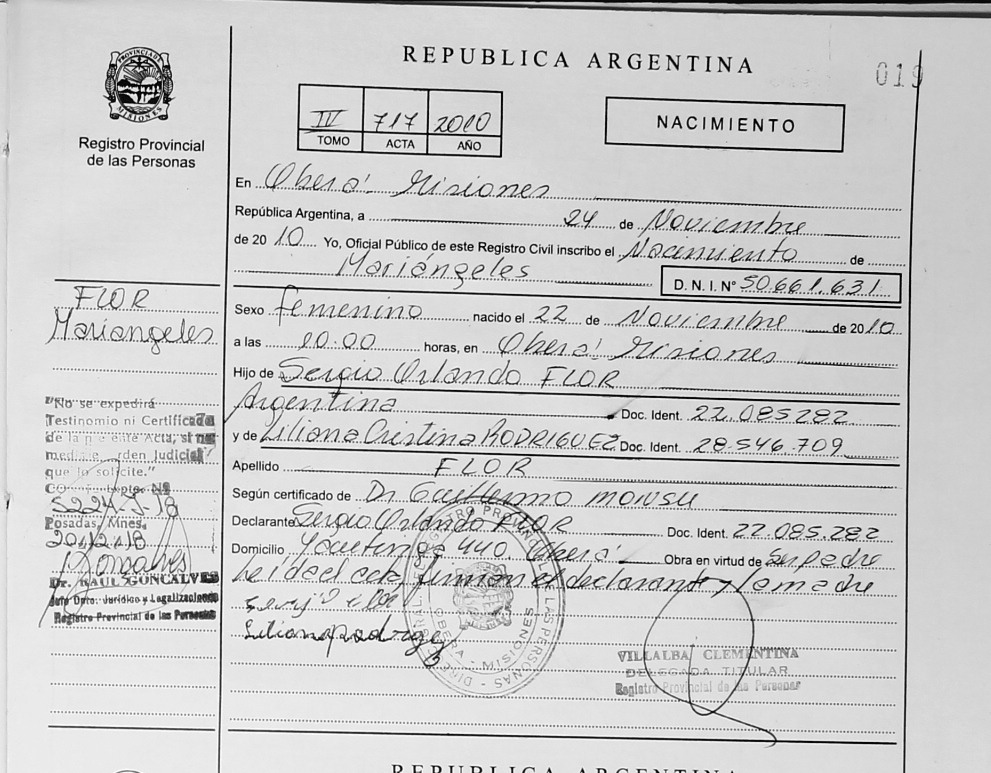 REPUBLICA ARGENTINA
019
PROVINCIA DE
MISIONES
Registro Provincial
de las Personas
IV 717 2010
TOMO ACTA AÑO
NACIMIENTO
En Oberá Misiones
República Argentina, a 24 de Noviembre
de 2010 Yo, Oficial Público de este Registro Civil inscribo el Nacimiento de
Mariángeles D. N. I. Nº 50.661.631
FLOR
Mariangeles
Sexo femenino nacido el 22 de Noviembre de 2010
a las 10:00 horas, en Oberá Misiones
Hijo de Sergio Orlando FLOR
Argentina Doc. Ident. 22.085.282
y de Liliana Cristina RODRIGUEZ Doc. Ident. 28.546.709
Apellido FLOR
Según certificado de Dr Guillermo
Declarante Sergio Orlando FLOR Doc. Ident. 22.085.282
Domicilio 440 Oberá Obra en virtud de Su padre
Leída el acta firman el declarante y la madre
"No se expedirá
Testimonio ni Certificado
de la presente Acta, si no
media orden Judicial
que lo solicite."
Expte. Nº
5224-J-18
Posadas, Mnes.
20/12/18
Dr. RAUL GONCALVES
Jefe Dpto. Jurídico y Legalizaciones
Registro Provincial de las Personas
REGISTRO PROVINCIAL DE LAS PERSONAS
OBERA - MISIONES
VILLALBA CLEMENTINA
DELEGADA TITULAR
Registro Provincial de las Personas
REPUBLICA ARGENTINA